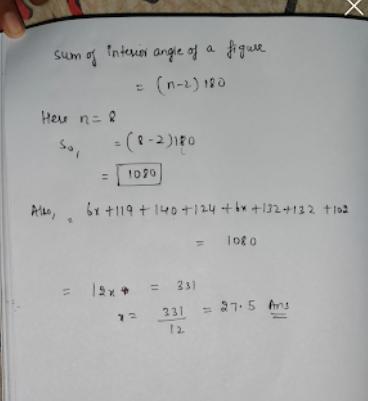 Sum of Interior angle of a figure
= (n-2) 180
Here n= 8
So, = (8-2)180
= 1080
Also, = 6x +119 + 140 +124 + 6x +132+132 +102
= 1080
= 12x = 331
x = 331/12 = 27.5 Ans